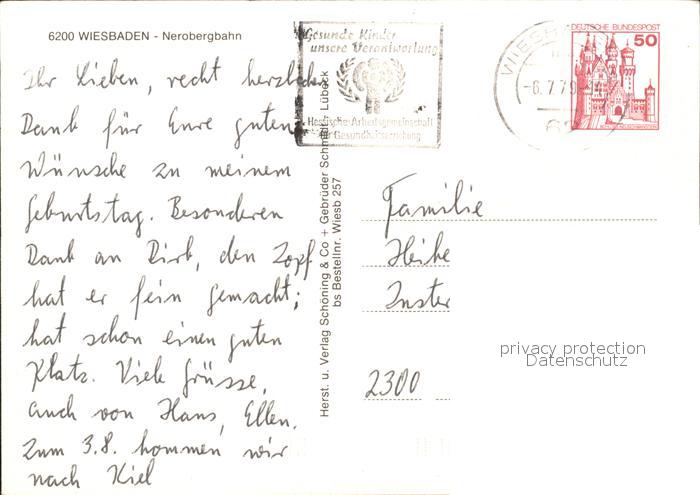 6200 WIESBADEN - Nerobergbahn
Ihr Lieben, recht herzlichen
Dank für Eure guten
Wünsche zu meinem
Geburtstag. Besonderen
Dank an Dirk, den Zopf
hat er fein gemacht;
hat schon einen guten
Platz. Viele Grüsse,
auch von Hans, Ellen.
Zum 3.8. kommen wir
nach Kiel
Gesunde Kinder
unsere Verantwortung
Hessische Arbeitsgemeinschaft
für Gesundheitserziehung
WIESB
-6.7.79
62
DEUTSCHE BUNDESPOST
50
Herst. u. Verlag Schöning & Co + Gebrüder Schmidt, Lübeck
bs Bestellnr. Wiesb 257
Familie
Heike
Inster
2300
privacy protection
Datenschutz